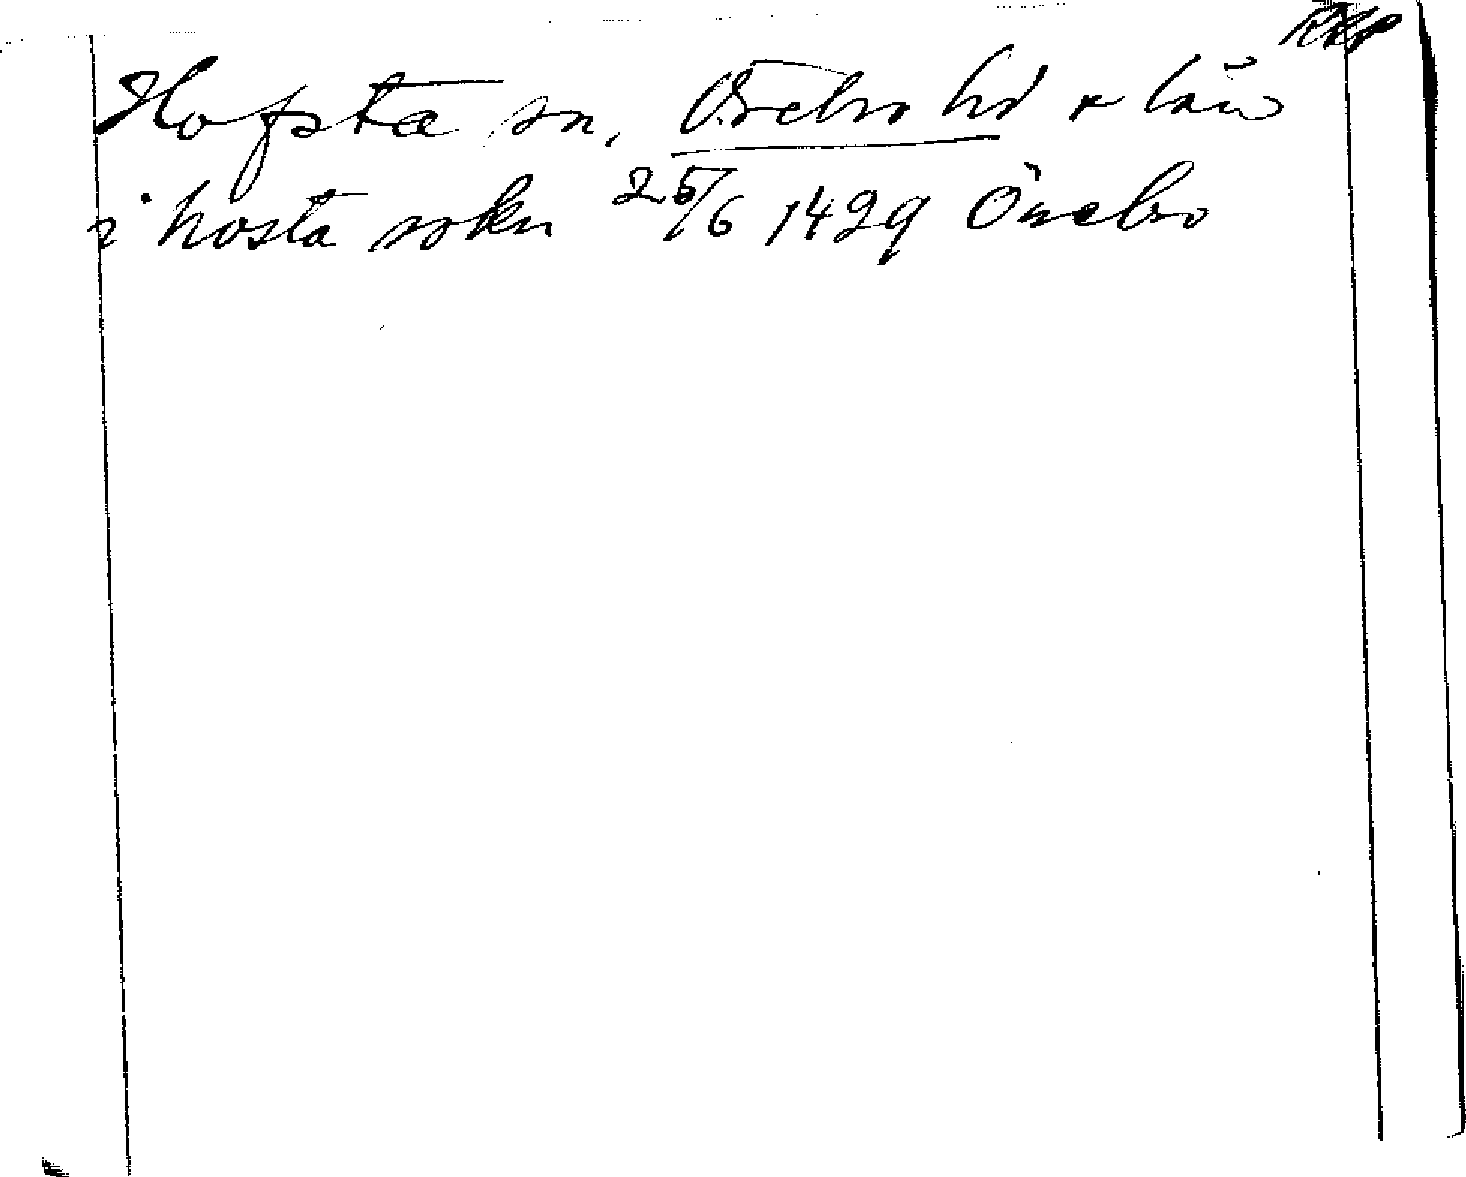 RAP
Hofsta sn, Örebro hd o län
i hosta sokn 25/6 1429 Örebro